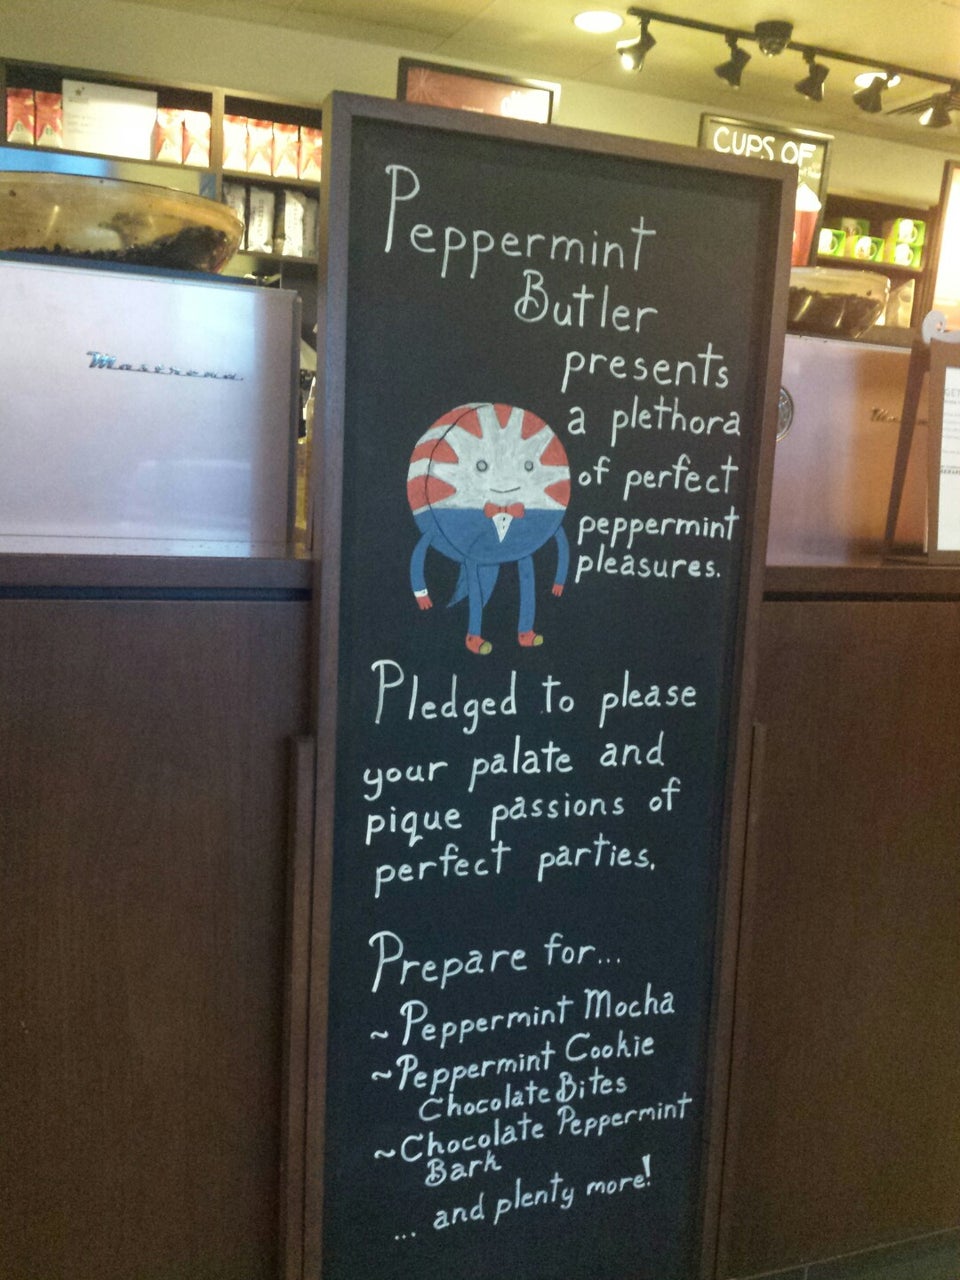 CUPS OF
Mastrena
Peppermint
Butler
presents
a plethora
of perfect
peppermint
pleasures.
Pledged to please
your palate and
pique passions of
perfect parties.
Prepare for...
~ Peppermint Mocha
~Peppermint Cookie
Chocolate Bites
~Chocolate Peppermint
Bark
... and plenty more!